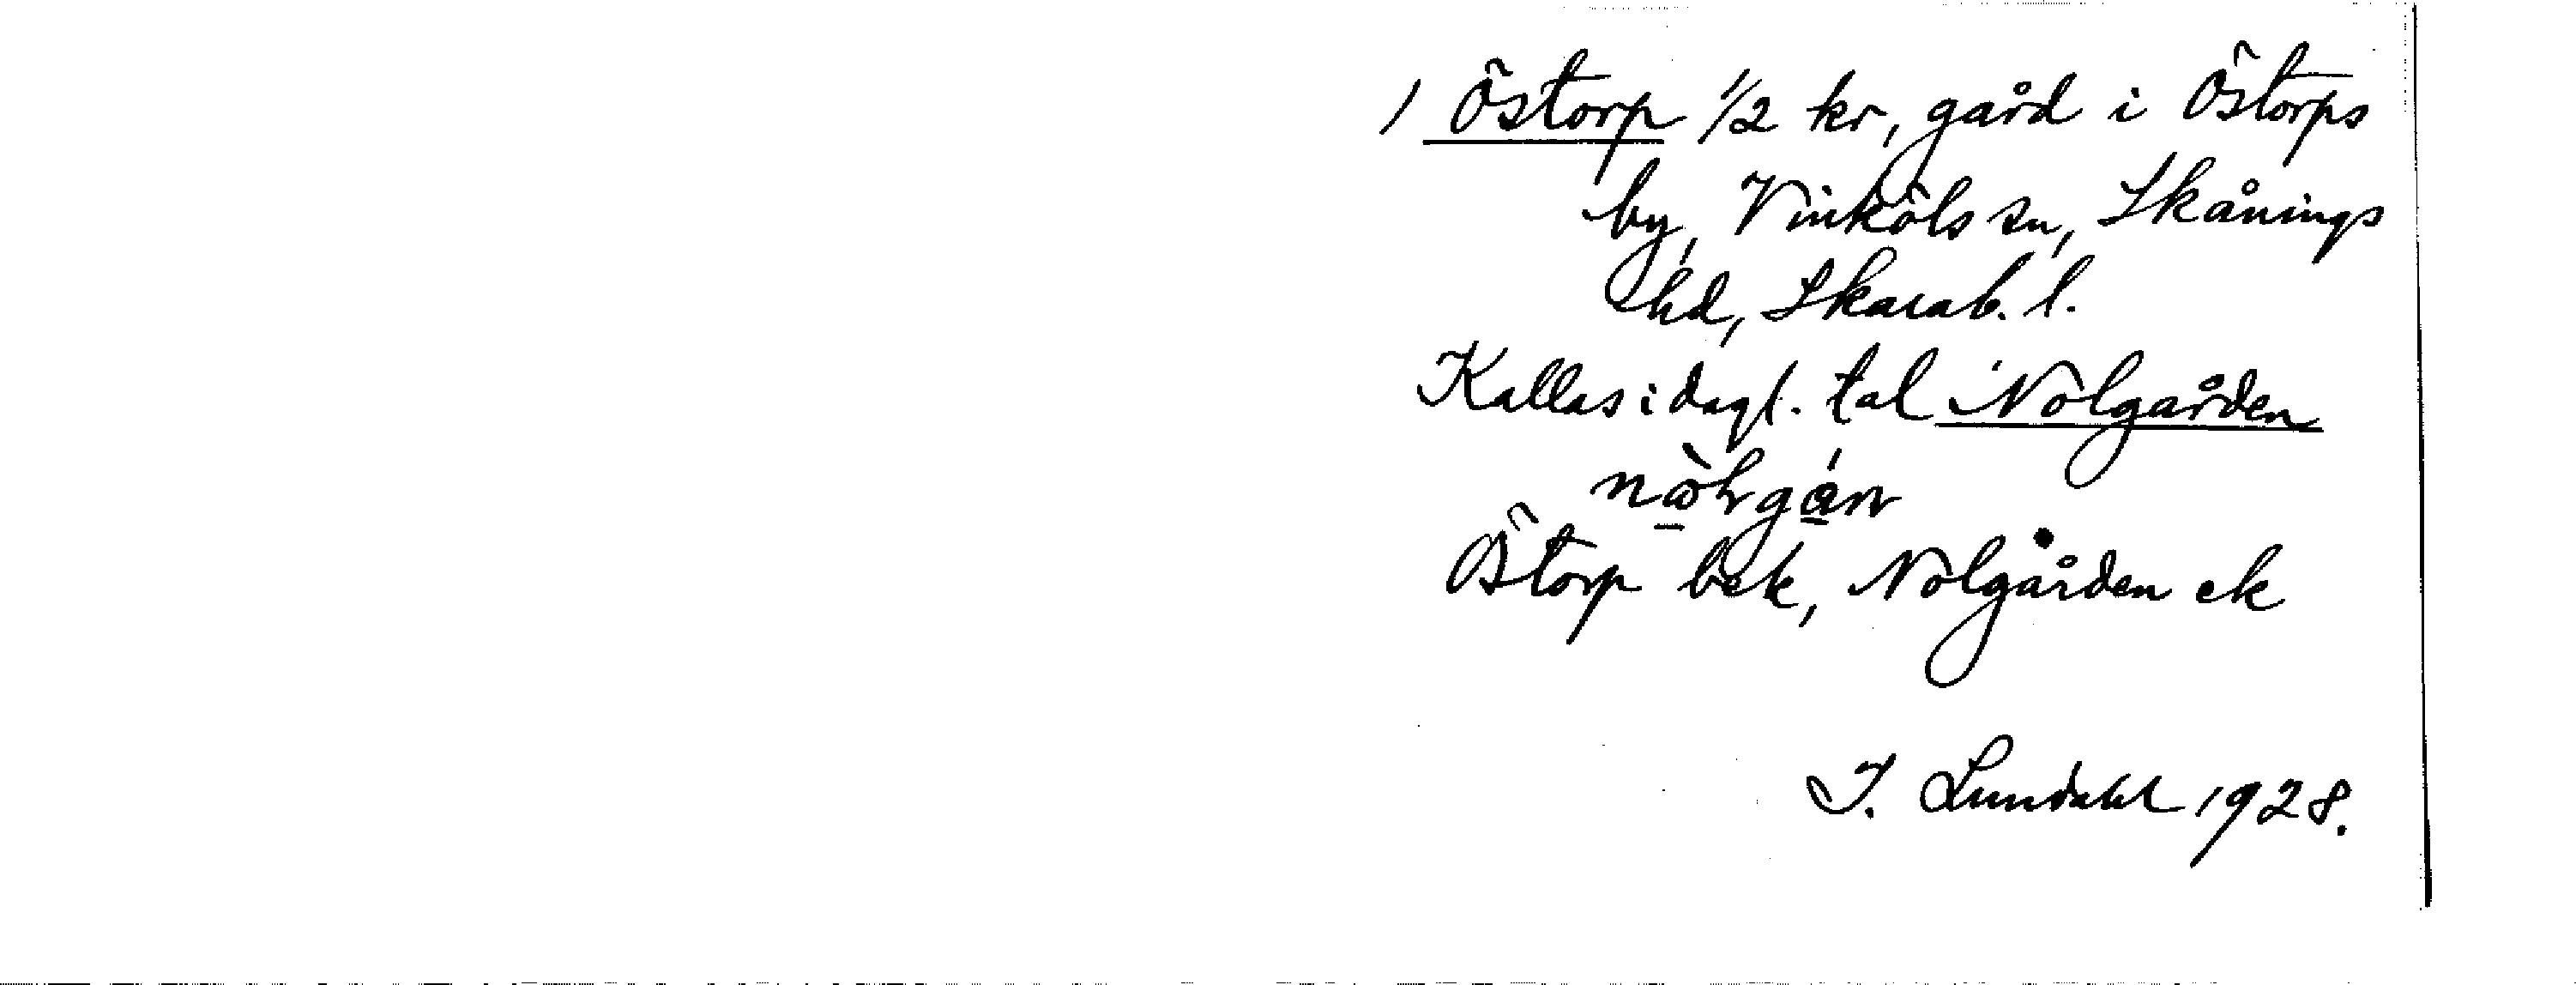 1 Östorp 1/2 kr, gård i Östorps
by, Vinköls sn, Skånings
hd, Skarab. l.
Kallas i dagl. tal Nolgården
Östorp bek, Nolgården ek
I. Lundahl 1928.